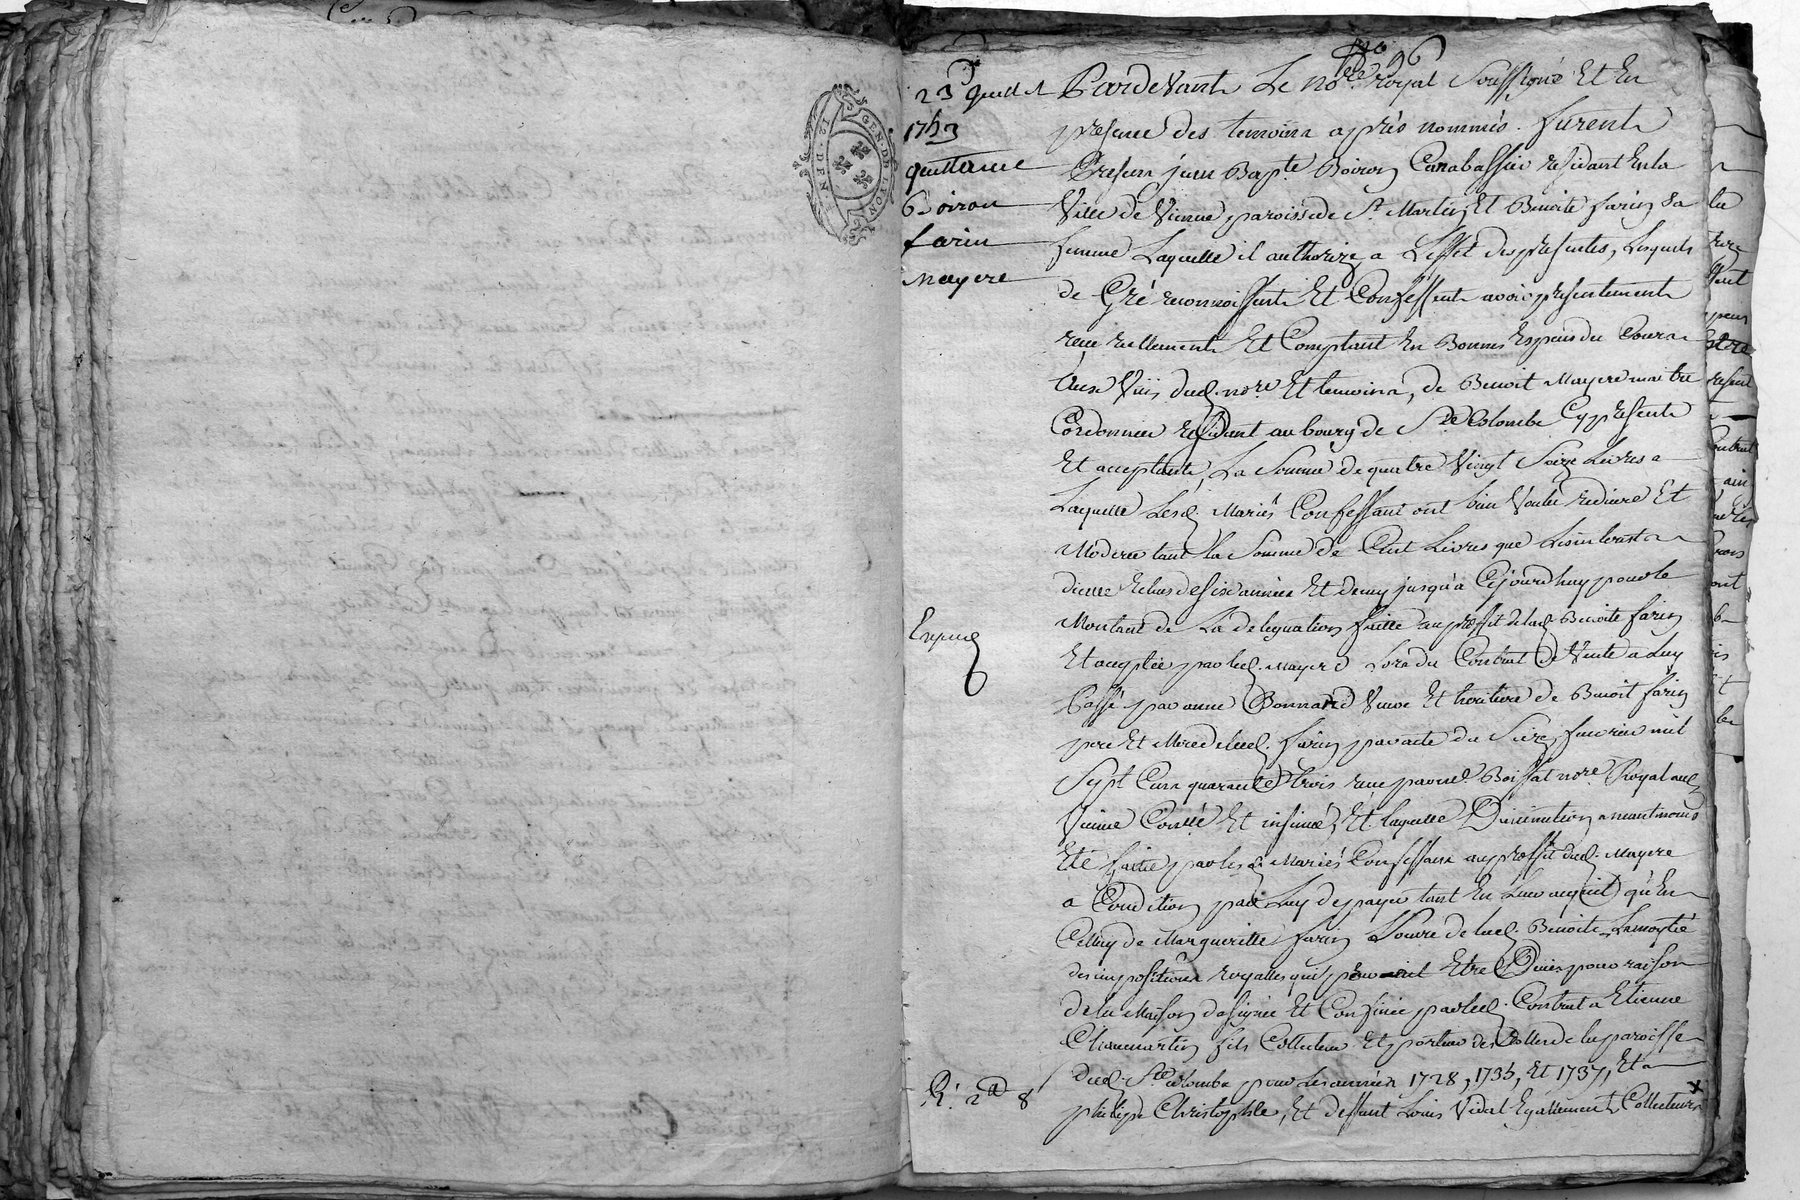 GEN. DE LYON
12. DEN.
96
23 Juillet
1753
quittance
Boiron
farin
mayere
Expeed
Pardevant Le no.re royal Soussigné Et En
presence des temoins après nommés. furent
Presens jean Bapt.e Boiron Canabassier residant En la
Ville de Vienne paroisse de St Martin Et Benoite farin Sa
femme Laquelle il authorize a L'effet des presentes, Lesquels
de Gré reconnoissent Et Confessent avoir presentement
receu reellement Et Comptant En Bonnes Especes du Cours
aux Vües dud. no.re Et temoins, de Benoit Mayere maitre
Cordonnier residant au bourg de S.te Colombe Cy present
Et acceptant, La Somme de quatre Vingt Seize Livres a
Laquelle Lesd. Mariés Confessant ont bien Voulu reduire Et
Moderer tant La Somme de Cent Livres que Les interests
d'icelle Echus de six années Et demy jusqu'a Cejourd'huy pour le
Montant de La delegation faitte au proffit de lad. Benoite farin
Et acceptée par led. Mayere Lors du Contrat de Vente a Luy
Passé par anne Bonnard Veuve Et heritiere de Benoit farin
pere Et Mere de lad. farin par acte du Seize fevrier mil
Sept Cens quarante trois receu par me. Boissat no.re Royal aud.
Vienne Conllé Et insinué, Et laquelle Diminution a neantmoins
Eté faitte par lesd. Mariés Confessans au proffit dud. Mayere
a Condition par Luy de payer tant En Leur acquit qu'En
Celluy de Margueritte farin Soeur de lad. Benoite La moytié
des impositions royalles qui peuvent Etre Dües pour raison
de la Maison designée Et Confinée par led. Contrat a Etienne
Chaumartin fils Collecteur Et porteur des Rolles de la paroisse
dud. Ste Colombe pour Les années 1728, 1735, Et 1737, Et a
philippe Christophle, Et deffunt Louis Vidal Egallement Collecteurs
R. 2d 8